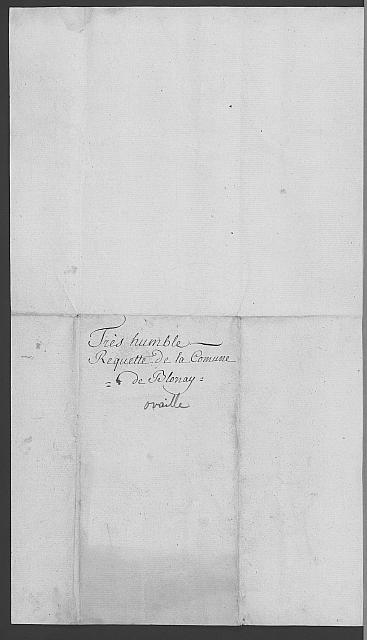 Très humble
Requette de la Comune
= de Blonay =
ovaille